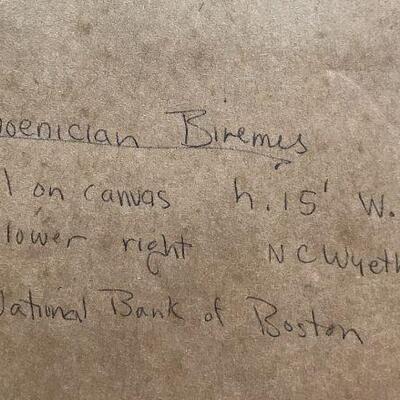 hoenician Biremes
l on canvas h. 15' W.
lower right NCWyeth
National Bank of Boston